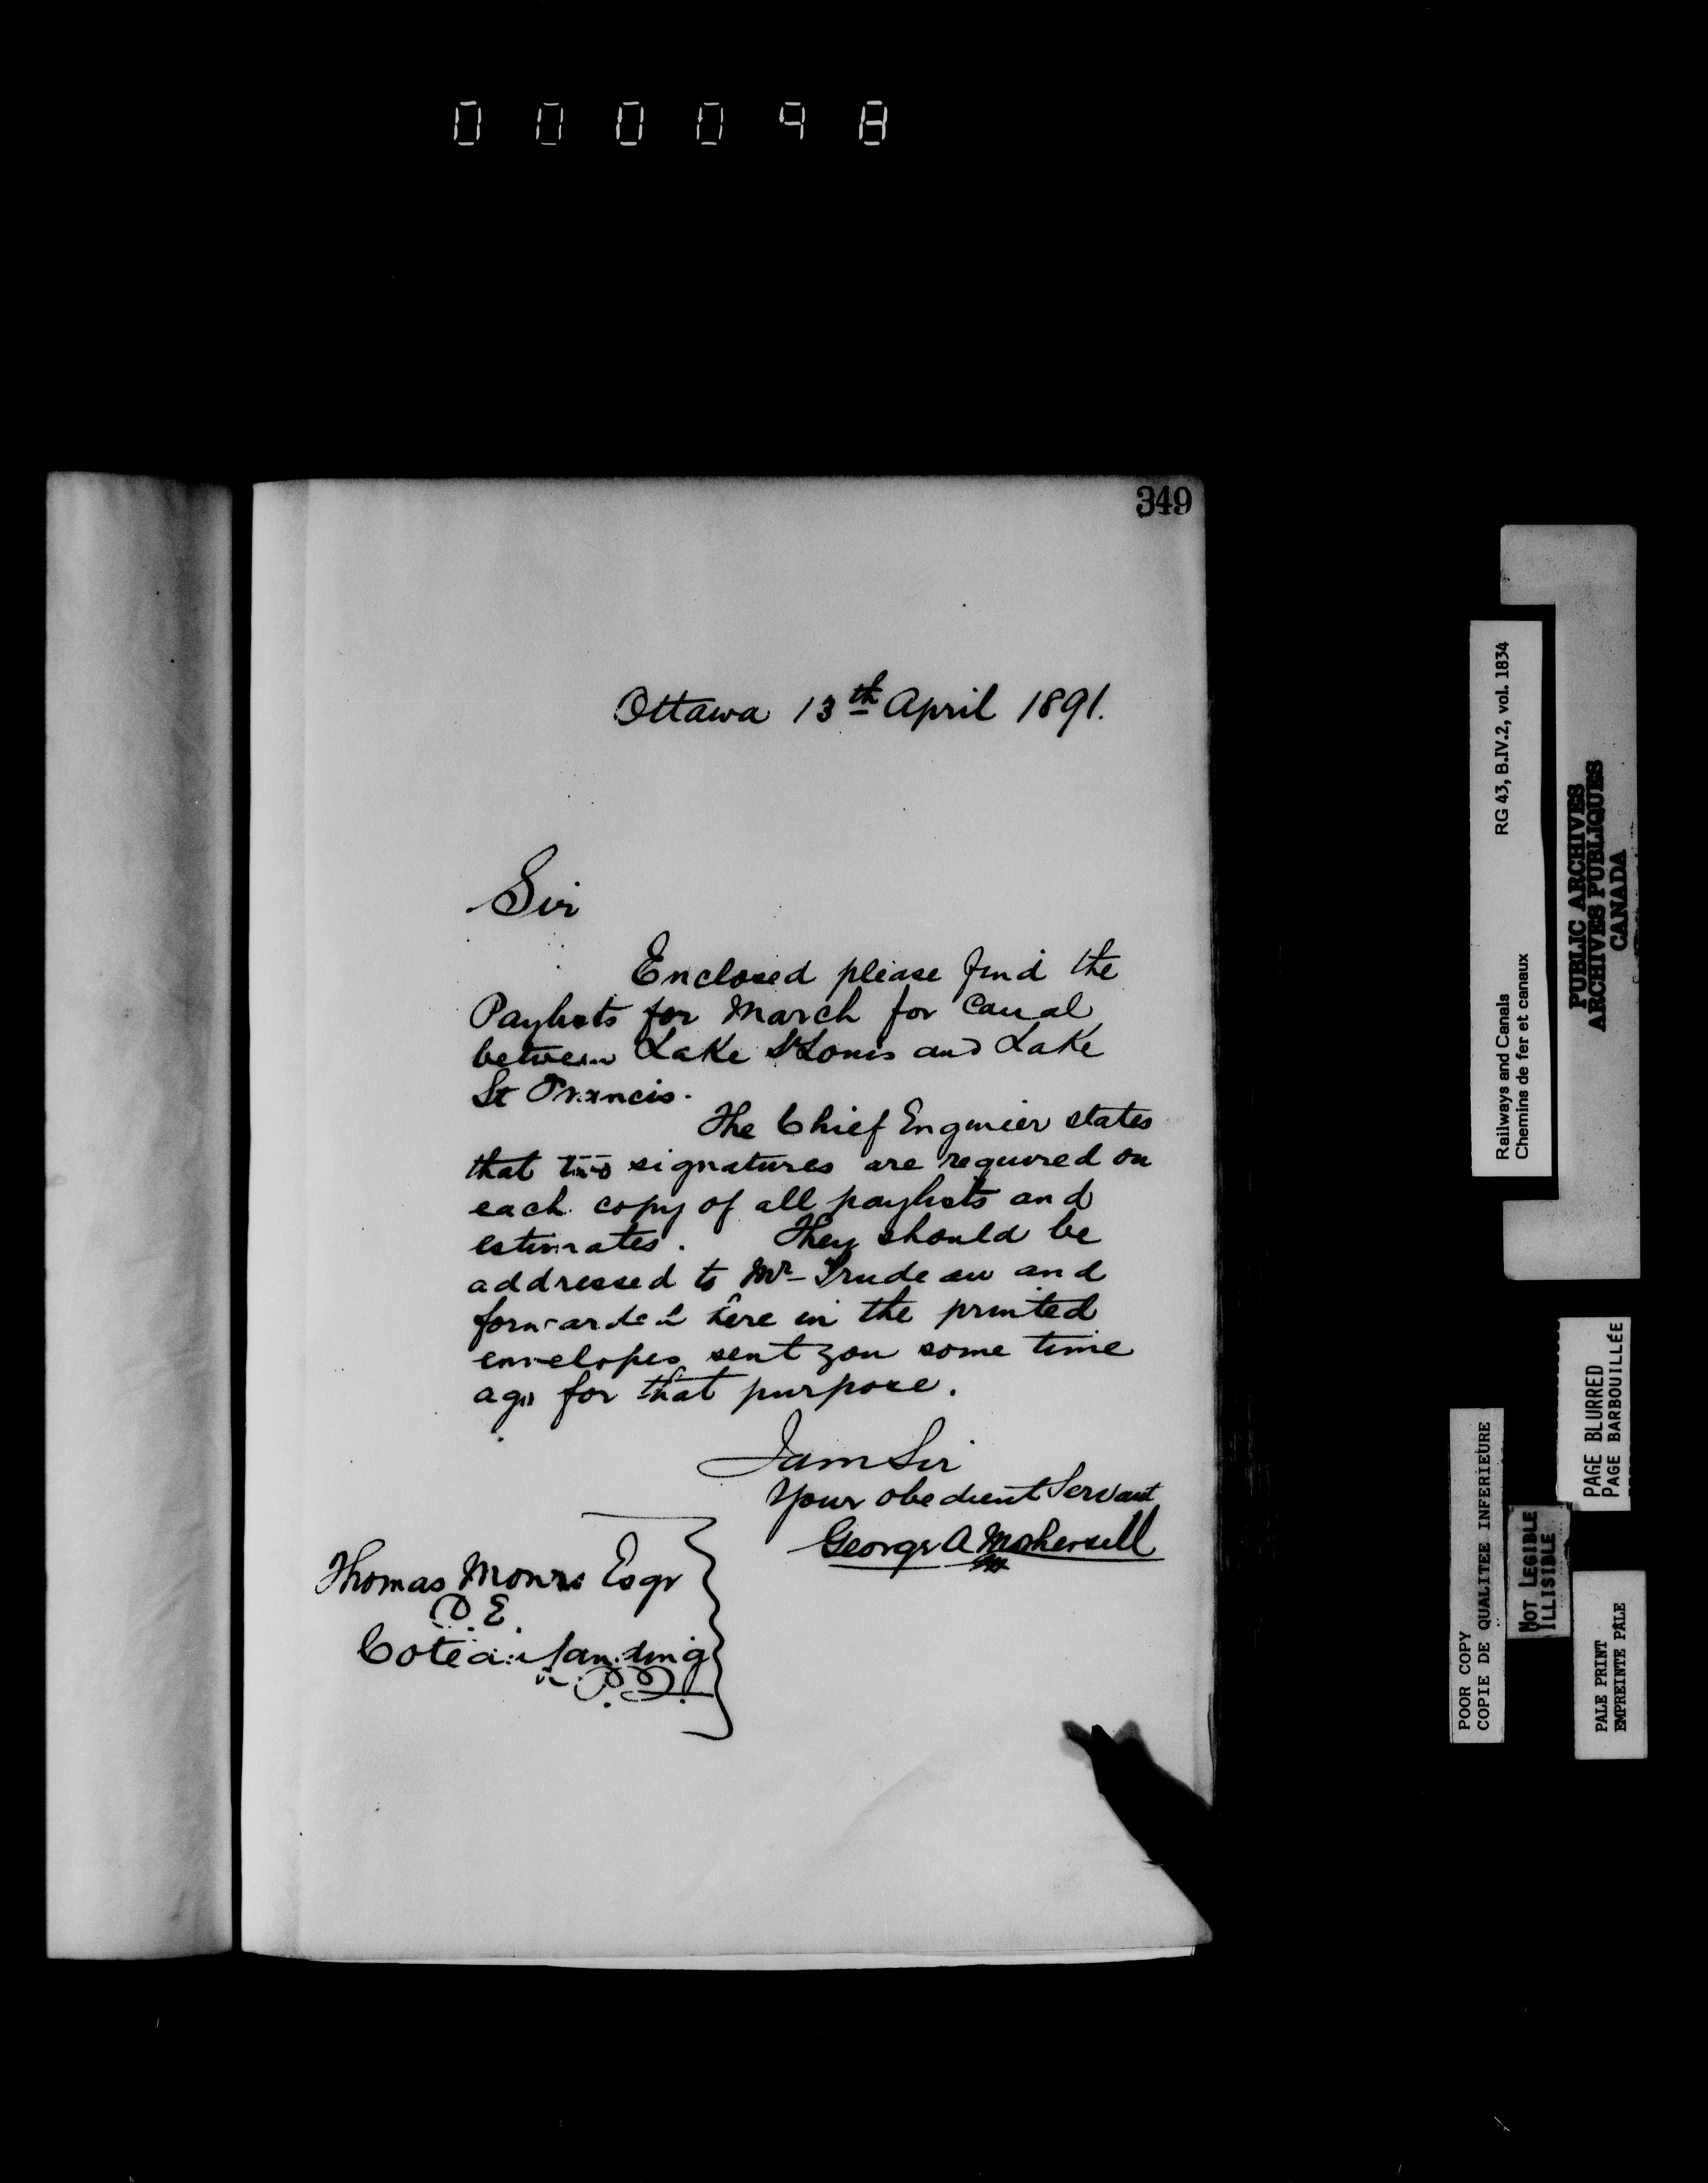 000098
349
Ottawa 13th April 1891.
Sir
Enclosed please find the
Paylists for March for Canal
between Lake St Louis and Lake
St Francis.
The Chief Engineer states
that two signatures are required on
each copy of all paylists and
estimates. They should be
addressed to Mr Trudeau and
forwarded here in the printed
envelopes sent you some time
ago for that purpose.
I am Sir
Your obedient Servant
George A Mothersill
Thomas Monro Esqr
Coteau Landing
P.Q.
Railways and Canals RG 43, B.IV.2, vol. 1834
Chemins de fer et canaux
PUBLIC ARCHIVES
ARCHIVES PUBLIQUES
CANADA
POOR COPY
COPIE DE QUALITEE INFERIEURE
NOT LEGIBLE
ILLISIBLE
PAGE BLURRED
PAGE BARBOUILLÉE
PALE PRINT
EMPREINTE PALE